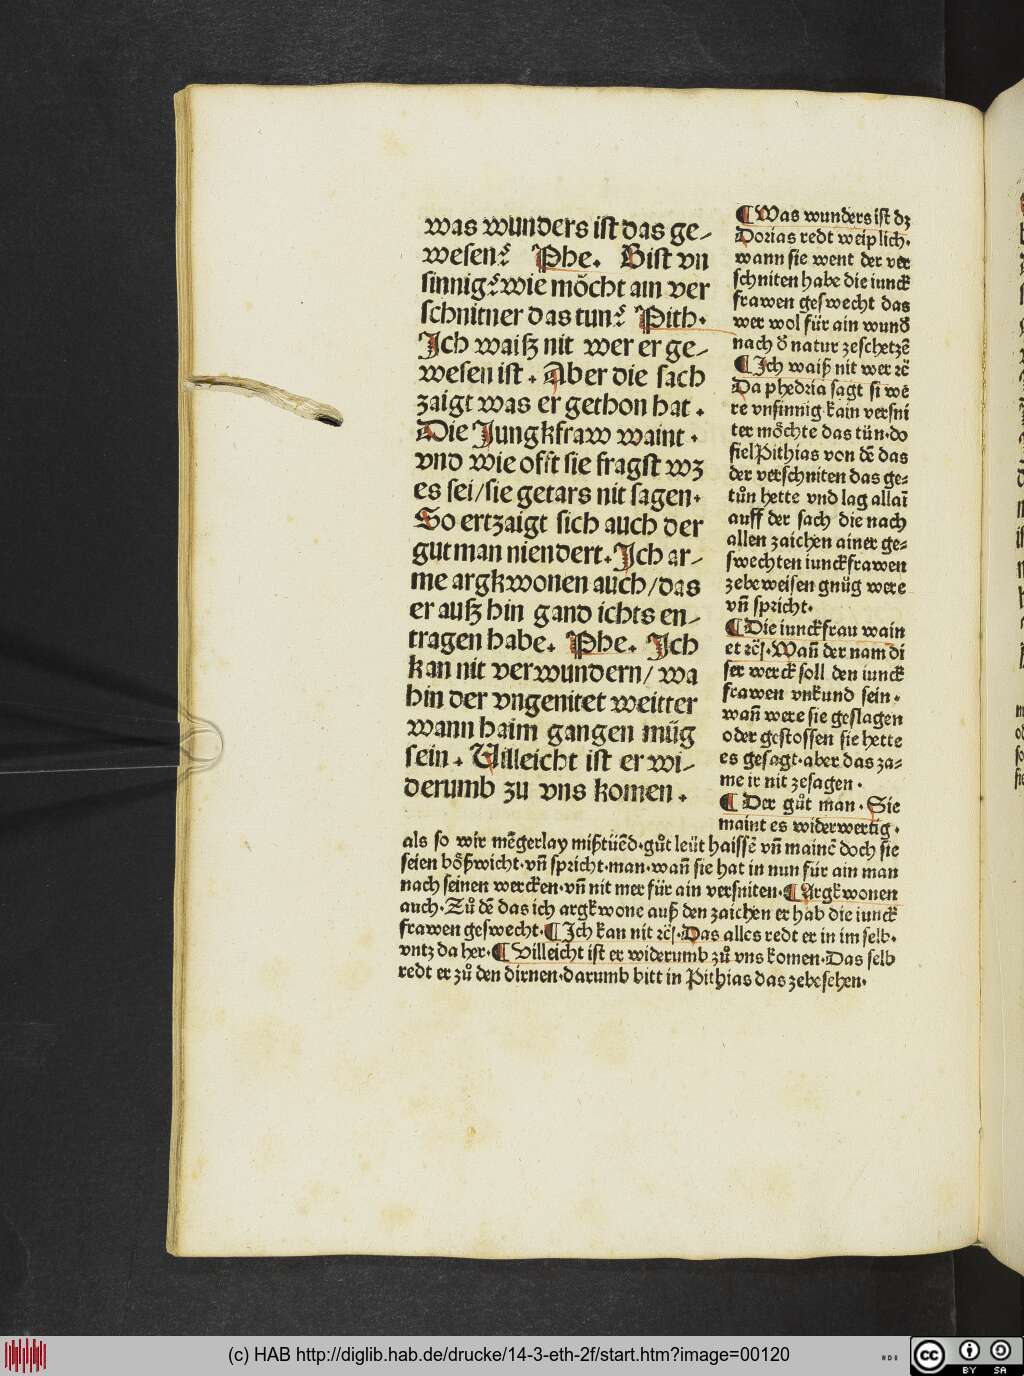 was wunders ist das ge⸗
wesen? Phe. Bist vn
sinnig? wie möcht ain ver
schnitner das tun? Pith.
Ich waiß nit wer er ge⸗
wesen ist. Aber die sach
zaigt was er gethon hat.
Die Jungkfraw waint.
vnd wie offt sie fragst wz
es sei/sie getars nit sagen.
So ertzaigt sich auch der
gut man niendert. Ich ar⸗
me argkwonen auch/das
er auß hin gand ichts en⸗
tragen habe. Phe. Ich
kan nit verwundern/wa
hin der vngenitet weitter
wann haim gangen müg
sein. Villeicht ist er wi⸗
derumb zu vns komen.
¶ Was wunders ist dz
Dorias redt weiplich.
wann sie went der ver
schniten habe die iunck
frawen geswecht das
wer wol für ain wund̄
nach d̄ natur zeschetzē
¶ Ich waiß nit wer ꝛc̄
Da phedria sagt si wē
re vnsinnig kain versni
ter möchte das tün.do
fiel Pithias von dē das
der verschniten das ge⸗
tůn hette vnd lag allaī
auff der sach die nach
allen zaichen ainer ge⸗
swechten iunckfrawen
zebeweisen gnůg were
vn̄ spricht.
¶ Die iunckfrau wain
et ꝛc̄. Wan̄ der nam di
ser werck soll den iunck
frawen vnkund sein.
wan̄ were sie geslagen
oder gestossen sie hette
es gesagt.aber das za⸗
me ir nit zesagen.
¶ Der gůt man. Sie
maint es widerwertig.
als so wir mēgerlay mißtüēd.gůt leüt haissē vn̄ mainē doch sie
seien bößwicht.vn̄ spricht.man.wan̄ sie hat in nun für ain man
nach seinen wercken.vn̄ nit mer für ain versniten. ¶ Argkwonen
auch. Zů dē das ich argkwone auß den zaichen er hab die iunck
frawen geswecht. ¶ Ich kan nit ꝛc̄. Das alles redt er in im selb.
vntz da her. ¶ Villeicht ist er widerumb zů vns komen. Das selb
redt er zů den dirnen.darumb bitt in Pithias das zebesehen.
(c) HAB http://diglib.hab.de/drucke/14-3-eth-2f/start.htm?image=00120
HAB
cc BY SA